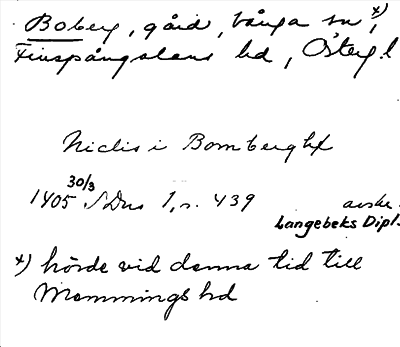 Boberg, gård, Vånga sn x),
Finspångaläns hd, Östergl.
Niclis i Bomberghx
1405 30/3 SDns 1, s. 439 avskr.
Langebeks Dipl.
x) hörde vid denna tid till
Memmings hd